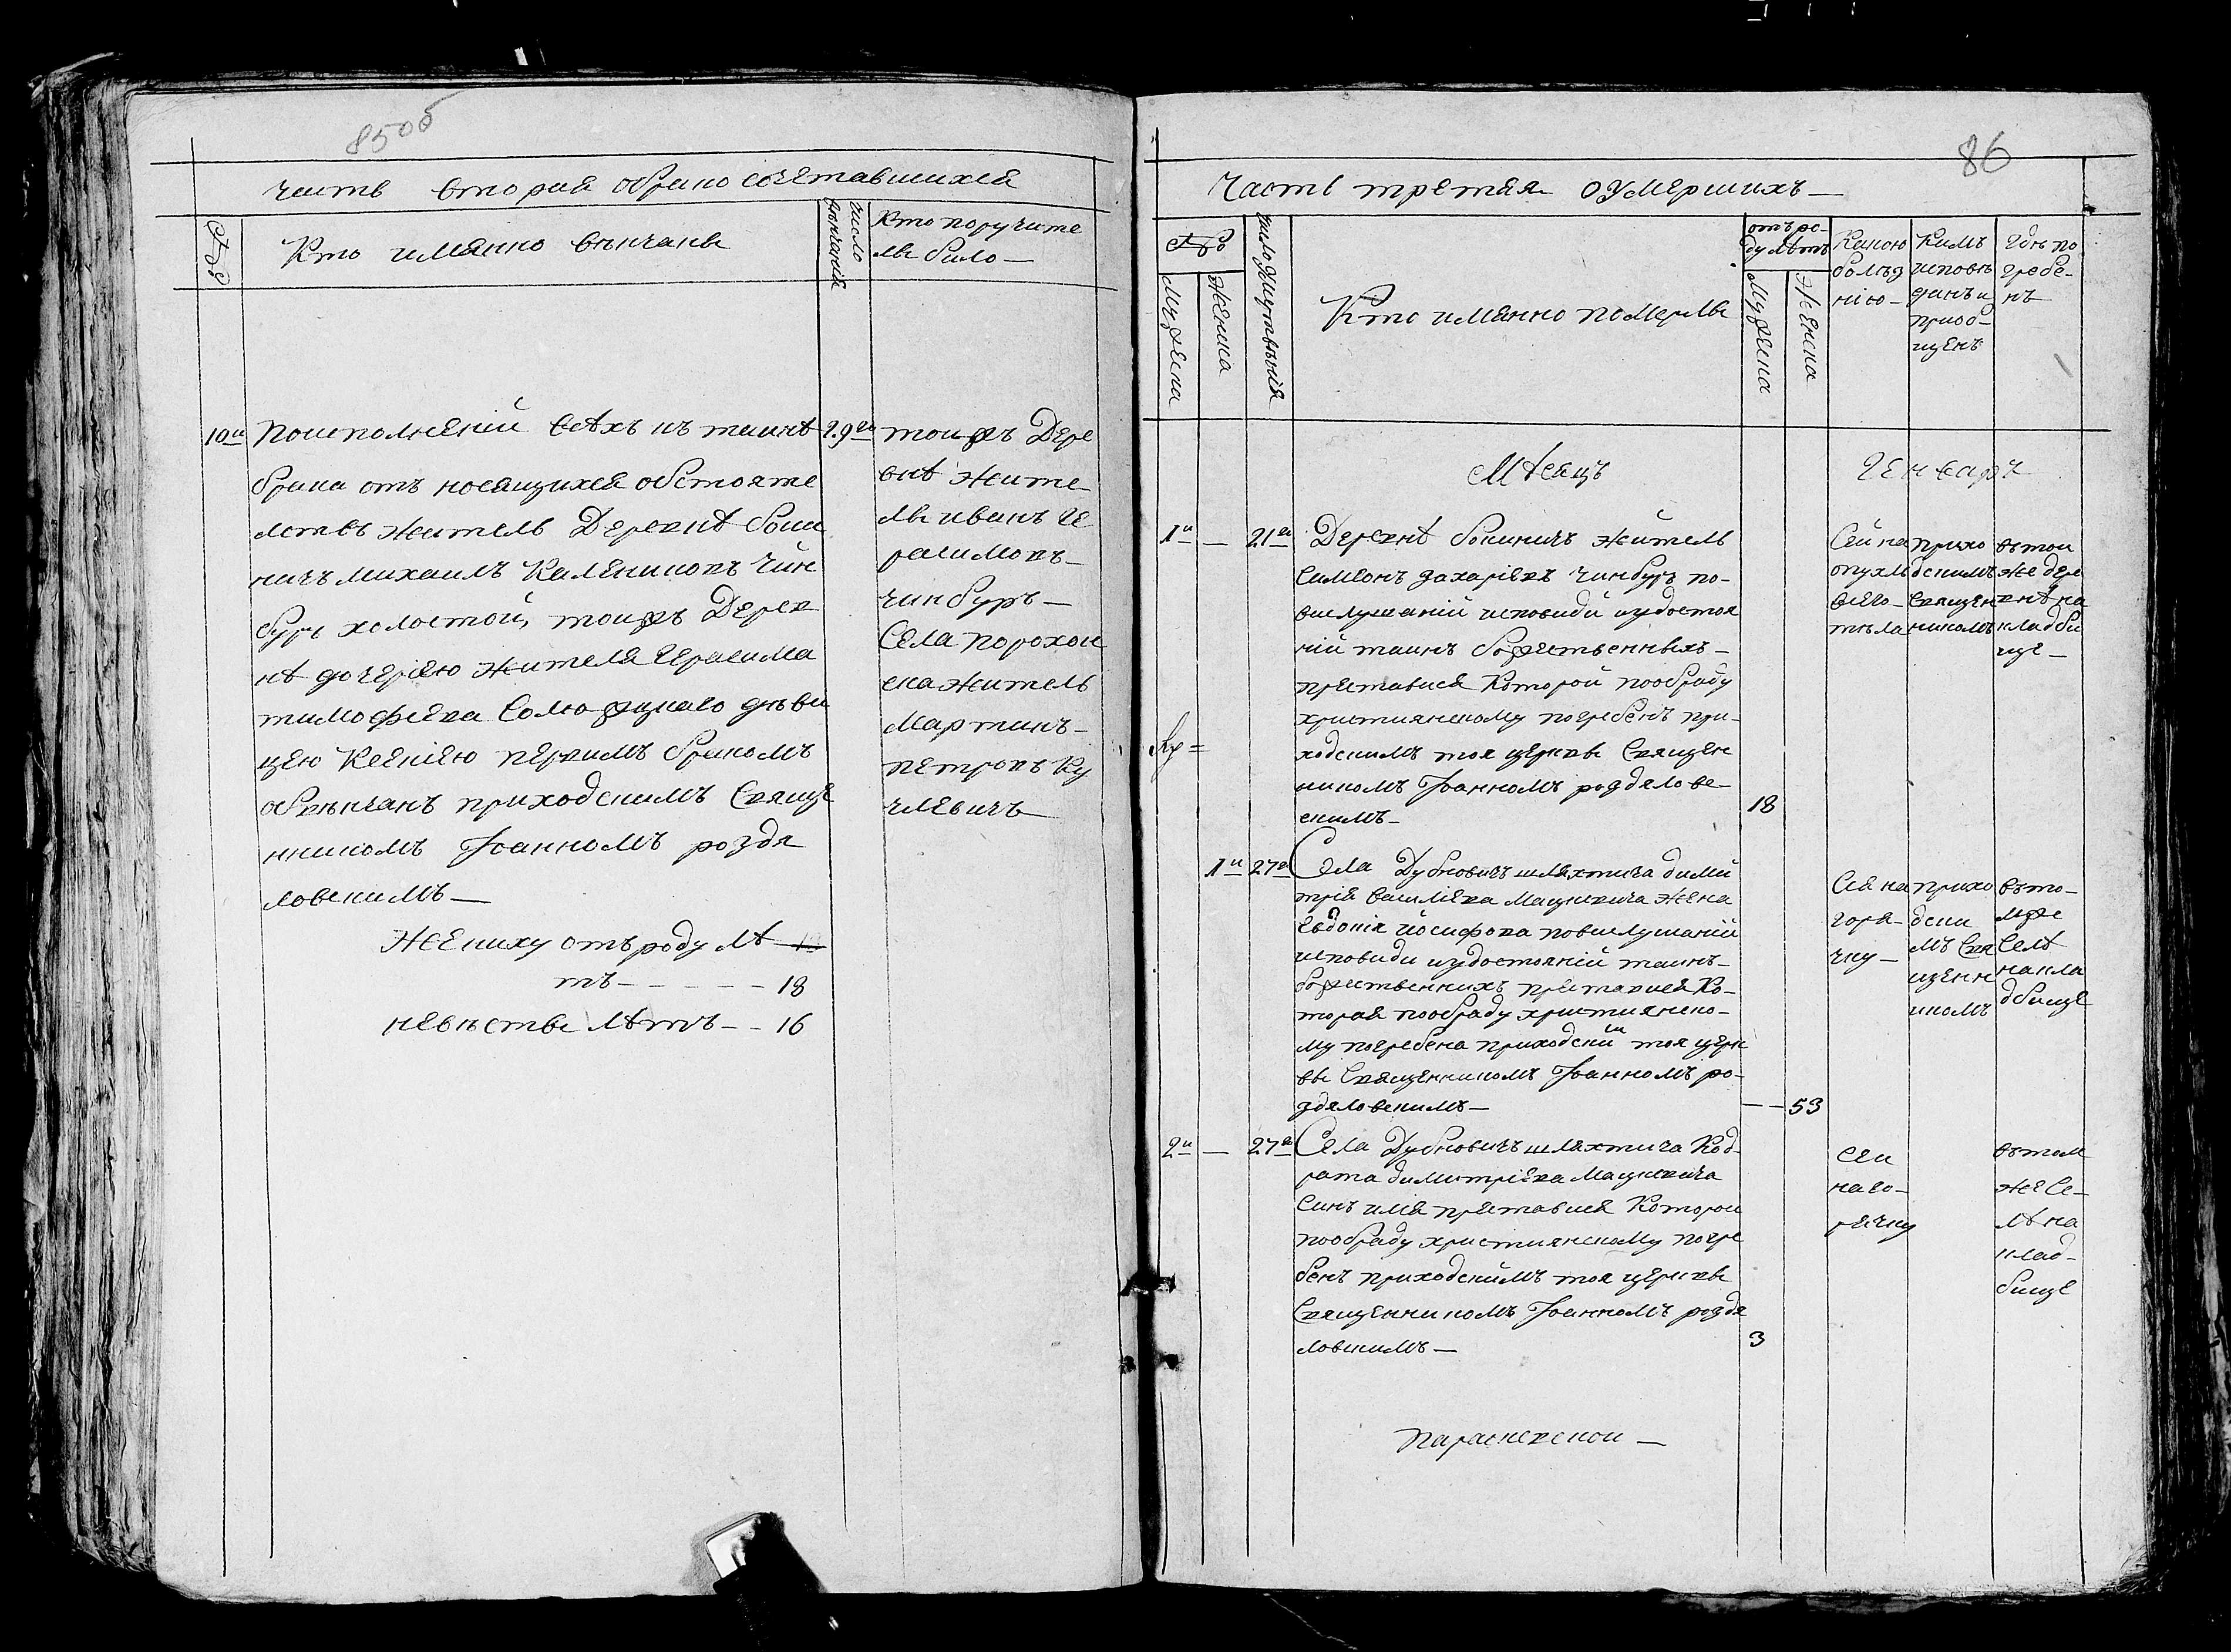 85об
часть вторая обрако сочетавшихся
№
Кто имянно венчаны
число венчания
Кто поручите
лы было —
10й
Поисполнений всѣхъ къ таинѣ
29го
брака отъ носящихся обстояте
лствъ житель Деревнѣ бош
ничъ михаилъ Калениковъ Чин
буръ холостой, тоижъ Дерев
нѣ дочерїею жителя Герасима
тимофѣева Солю дѣви
цею Ксенїею первимъ бракомъ
обвѣнчанъ приходскимъ Свяще
нникомъ Іоанномъ роздя
ловскимъ —
Жениху отъроду лѣ
тъ — — — — — 18
невѣсты лѣтъ — — 16
тоижъ Дере
внѣ жите
лы иванъ Ге
расимовъ —
чинбуръ —
Села порохон
ска житель
Мартинъ —
петровъ Ку
чмевичъ
86
Часть третяя оумершихъ —
№
Мужеска
Женска
Кто имянно померлы
отъро-
дулѣтъ
Мужеска
Женска
Какою
болѣз
нїю —
Кимъ
исповѣ
данъ и
приоб-
щенъ
Гдѣ по
гребе-
нъ
Мѣсяцъ
Генварь
1й — 21го
Деревнѣ бошничъ житель
симеонъ захарїевъ чинбуръ по-
вислушанїй исповиди иудостоя
нїй таинъ божественныхъ —
преставися Которой пообряду
християнскому погребенъ при-
ходскимъ тоя церквы Священ
никомъ Іоанномъ роздялове-
скимъ —
18
Сей на
опухлъ
всего —
тѣла
прихо
дскимъ
священ
никомъ
втои
же дере
внѣ на
кладби
ще —
1й 27го
Села Дубновичъ шляхтича дими
трїя василїева Мацкевича жена
Евдокїя йосифова повислушанїй
исповиди иудостоянїй таинъ —
божественнихъ преставися Ко-
торая пообряду християнско-
му погребена приходским тоя церк
вы Священникомъ Іоанномъ ро-
здяловскимъ —
— — 53
Сїя на
горя-
чку —
прихо
дски
мъ Свя
щенн
икомъ
вто-
мже
Селѣ
накла
дбище
2й — 27го
Села Дубновичъ шляхтича Код-
рата димитрїева Мацкевича
Синъ илїя преставися Которои
пообряду християнскому погре
бенъ приходскимъ тоя церквы
Священникомъ Іоанномъ роздя
ловскимъ —
3
Сеи
наго-
рячку
втом
же Се-
лѣ на
клад-
бище
Параскевскои —